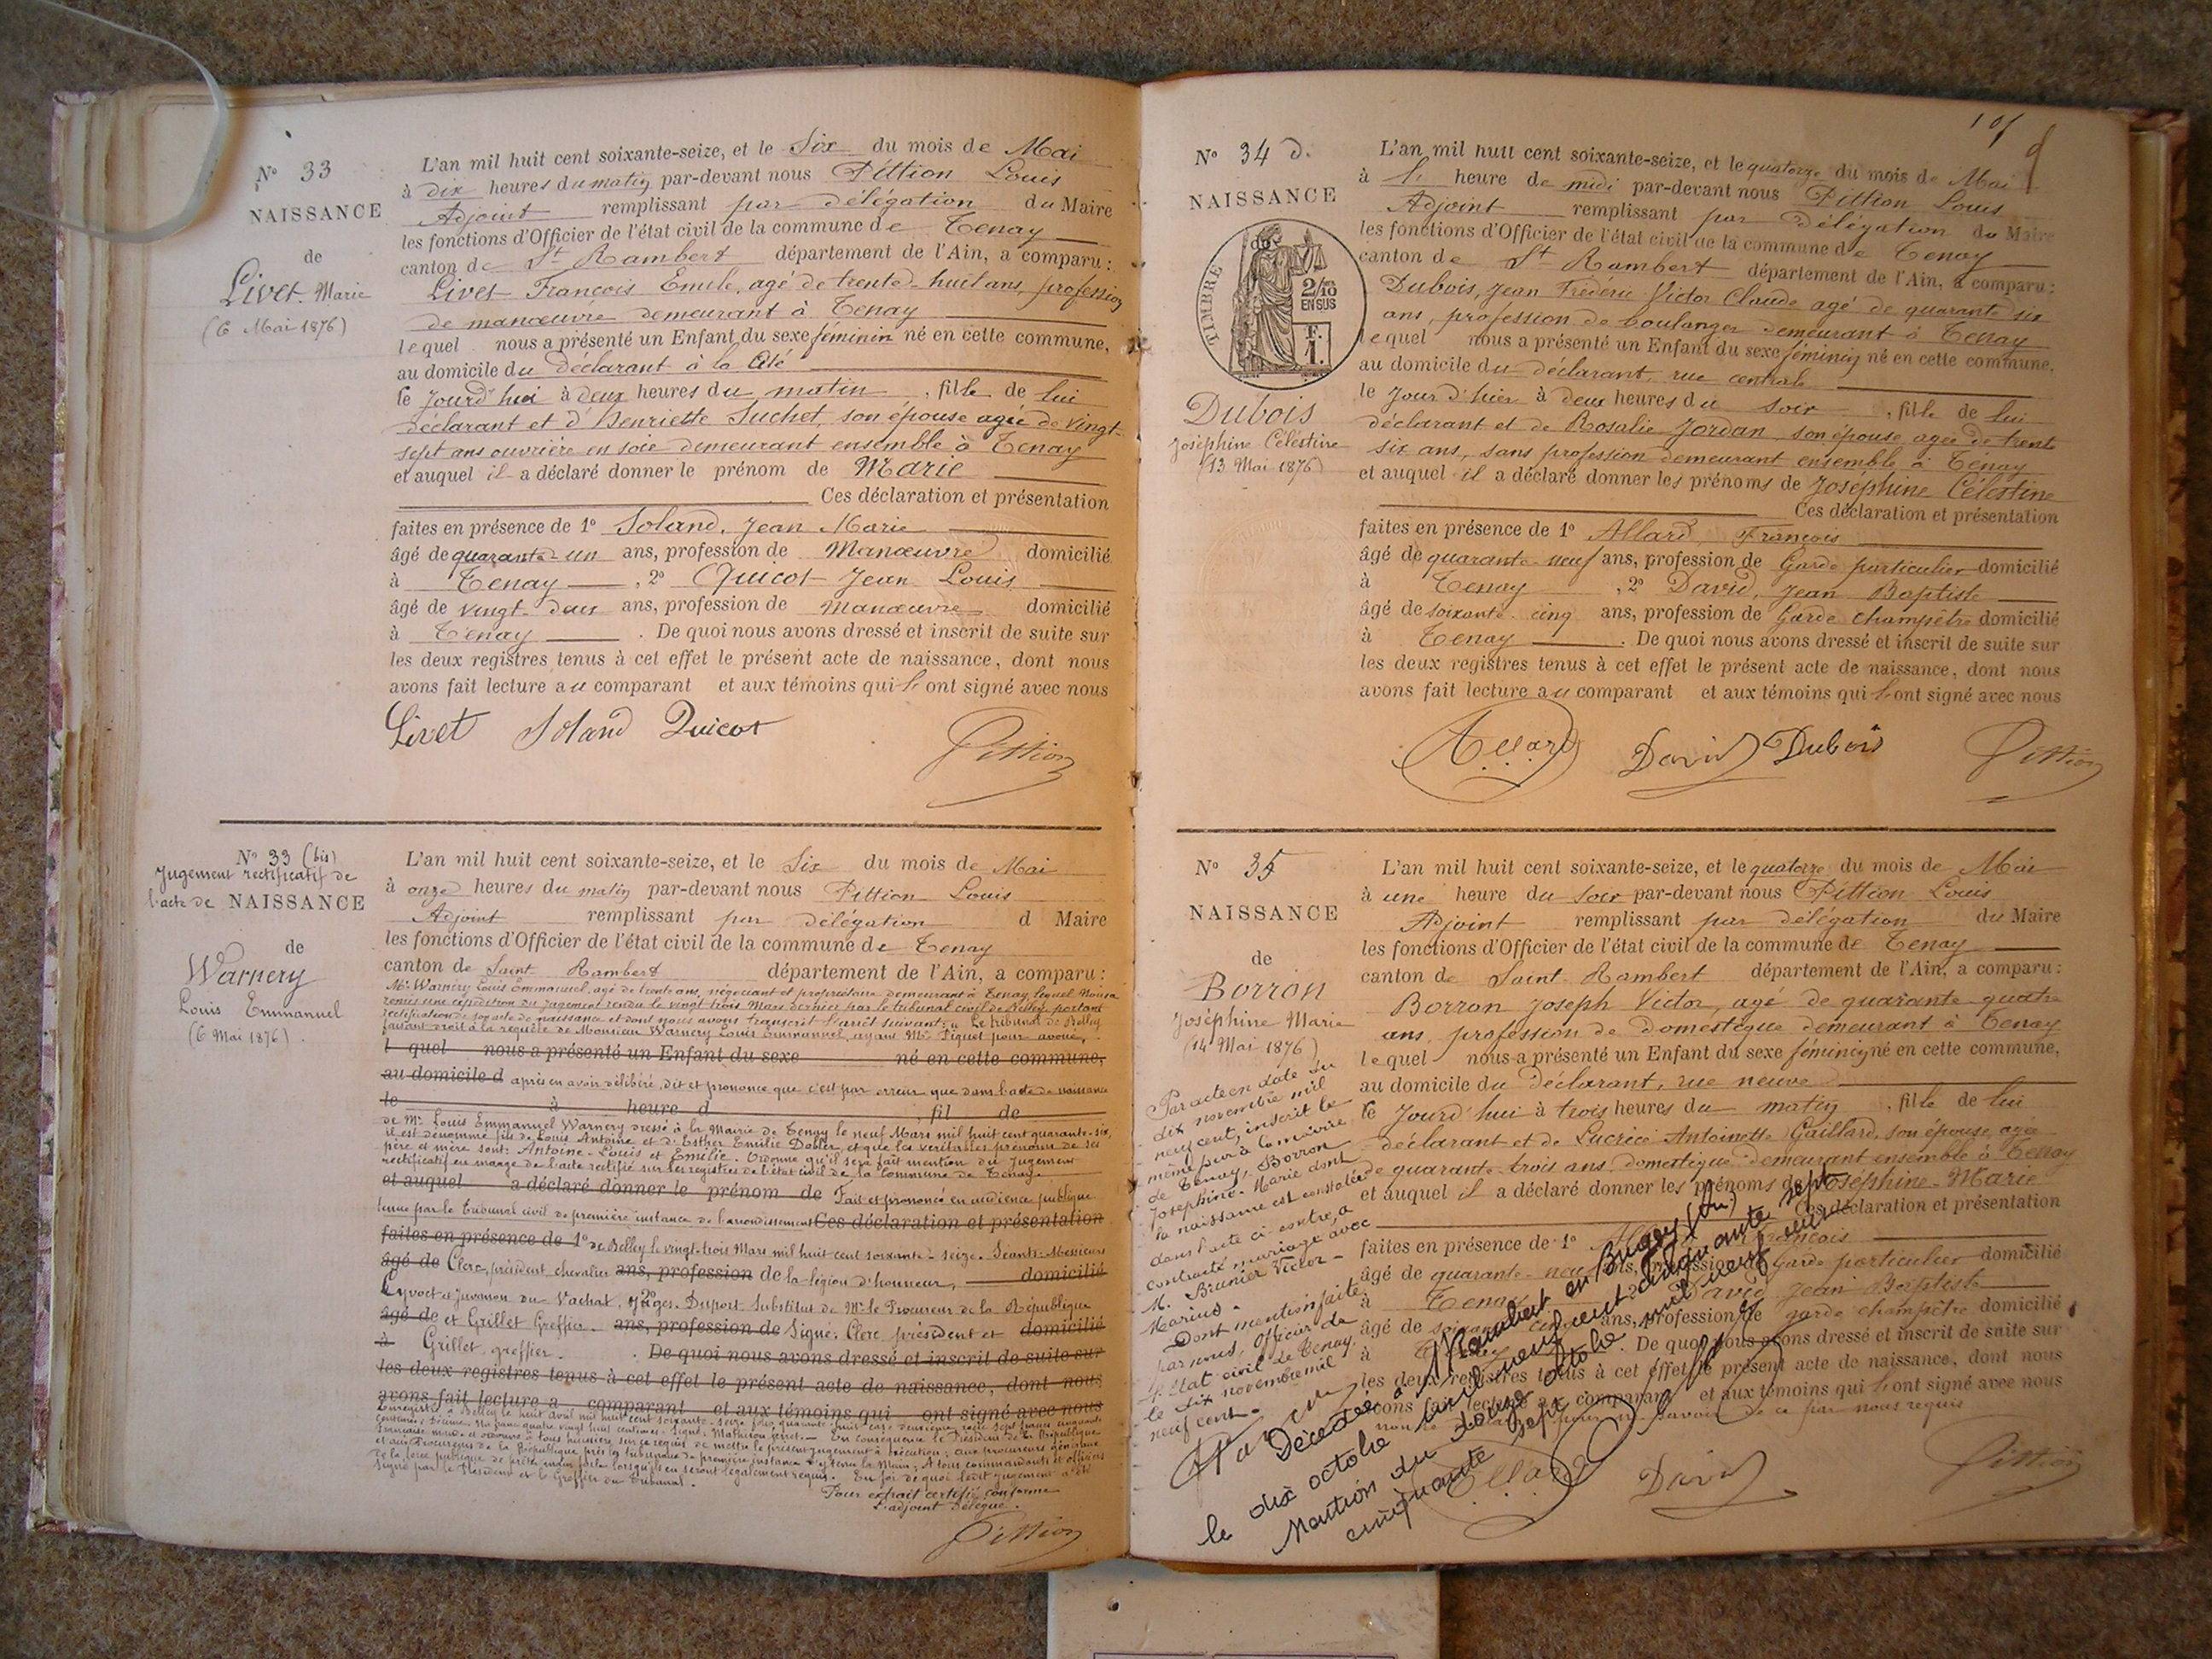 N° 33
NAISSANCE
de
Livet Marie
(6 Mai 1876)
L'an mil huit cent soixante-seize, et le Six du mois de Mai
à dix heures du matin par-devant nous Pittion Louis
Adjoint remplissant par délégation du Maire
les fonctions d'Officier de l'état civil de la commune de Tenay
canton de St Rambert département de l'Ain, a comparu :
Livet François Emile, agé de trente-huit ans, profession
de manœuvre demeurant à Tenay
lequel nous a présenté un Enfant du sexe féminin né en cette commune,
au domicile du Déclarant à la Cité
le jourd'hui à deux heures du matin, fille de lui
déclarant et d'Henriette Suchet, son épouse agée de vingt-
sept ans ouvrière en soie demeurant ensemble à Tenay
et auquel il a déclaré donner le prénom de Marie
Ces déclaration et présentation
faites en présence de 1° Soland, Jean Marie
âgé de quarante-un ans, profession de Manœuvre domicilié
à Tenay, 2° Quicot Jean Louis
âgé de vingt-deux ans, profession de manœuvre domicilié
à Tenay. De quoi nous avons dressé et inscrit de suite sur
les deux registres tenus à cet effet le présent acte de naissance, dont nous
avons fait lecture au comparant et aux témoins qui l'ont signé avec nous
Livet Soland Quicot
Pittion
N° 33 (bis)
Jugement rectificatif de
l'acte de NAISSANCE
de
Warnery
Louis Emmanuel
(6 Mai 1876).
L'an mil huit cent soixante-seize, et le Six du mois de Mai
à onze heures du matin par-devant nous Pittion Louis
Adjoint remplissant par délégation d Maire
les fonctions d'Officier de l'état civil de la commune de Tenay
canton de Saint Rambert département de l'Ain, a comparu :
Mr Warnery Louis Emmanuel, agé de trente ans, négociant et propriétaire demeurant à Tenay, lequel Nous a
remis une expédition du jugement rendu le vingt trois Mars dernier par le tribunal civil de Belley portant
rectification de son acte de naissance et dont nous avons transcrit l'arrêt suivant : Le tribunal de Belley
faisant droit à la requête de Monsieur Warnery Louis Emmanuel, ayant Me Piquet pour avoué,
l quel nous a présenté un Enfant du sexe né en cette commune,
au domicile d après en avoir délibéré, dit et prononce que c'est par erreur que dans l'acte de naissance
le à heure d, fil de
de Mr Louis Emmanuel Warnery dressé à la Mairie de Tenay le neuf Mars mil huit cent quarante-six,
il est dénommé fils de Louis Antoine et d'Esther Emilie Doller, et que les véritables prénoms de ses
père et mère sont : Antoine-Louis et Emilie. Ordonne qu'il sera fait mention du Jugement
rectificatif en marge de l'acte rectifié sur les registres de l'état civil de la Commune de Tenay.
et auquel a déclaré donner le prénom de Fait et prononcé en audience publique
tenue par le Tribunal civil de première instance de l'arrondissement Ces déclaration et présentation
faites en présence de 1° de Belley le vingt-trois Mars mil huit-cent soixante-seize. Séants : Messieurs
âgé de Clerc, président chevalier ans, profession de la légion d'honneur, domicilié
Cyvoct et Juvanon du Vachat, Juges. Duport Substitut de Mr le Procureur de la République
âgé de et Grillet Greffier. ans, profession de Signé : Clerc président et domicilié
à Grillet, greffier. De quoi nous avons dressé et inscrit de suite sur
les deux registres tenus à cet effet le présent acte de naissance, dont nous
avons fait lecture a comparant et aux témoins qui ont signé avec nous
Enregistré à Belley le huit Avril mil huit cent soixante-seize
Signé par le Président et le Greffier du Tribunal.
Pour extrait certifié conforme
L'adjoint Délégué.
Pittion
107
N° 34 d.
NAISSANCE
de
TIMBRE
2/10 EN SUS
F. 1.
Dubois
Joséphine Célestine
(13 Mai 1876)
L'an mil huit cent soixante-seize, et le quatorze du mois de Mai
à heure de midi par-devant nous Pittion Louis
Adjoint remplissant par Délégation du Maire
les fonctions d'Officier de l'état civil de la commune de Tenay
canton de St Rambert département de l'Ain, a comparu :
Dubois, Jean Frédéric Victor Claude agé de quarante six
ans, profession de boulanger demeurant à Tenay
lequel nous a présenté un Enfant du sexe féminin né en cette commune,
au domicile du déclarant, rue centrale
le Jour d'hier à deux heures du soir, fille de lui
déclarant et de Rosalie Jordan son épouse, agée de trente
six ans, sans profession demeurant ensemble à Tenay
et auquel il a déclaré donner les prénoms de Joséphine Célestine
Ces déclaration et présentation
faites en présence de 1° Allard, François
âgé de quarante-neuf ans, profession de Garde particulier domicilié
à Tenay, 2° David, Jean Baptiste
âgé de soixante-cinq ans, profession de Garde champêtre domicilié
à Tenay. De quoi nous avons dressé et inscrit de suite sur
les deux registres tenus à cet effet le présent acte de naissance, dont nous
avons fait lecture au comparant et aux témoins qui l'ont signé avec nous
Allard David Dubois Pittion
N° 35
NAISSANCE
de
Borron
Joséphine Marie
(14 Mai 1876)
Par acte en date du
dix novembre mil
neuf cent, inscrit le
même jour à la mairie
de Tenay, Borron
Joséphine-Marie dont
la naissance est constatée
dans l'acte ci-contre, a
contracté mariage avec
M. Brunier Victor-
Marius.
Dont mention faite
par nous, Officier de
l'Etat civil de Tenay.
le dix novembre mil
neuf cent.
L'an mil huit cent soixante-seize, et le quatorze du mois de Mai
à une heure du soir par-devant nous Pittion Louis
Adjoint remplissant par délégation du Maire
les fonctions d'Officier de l'état civil de la commune de Tenay
canton de Saint Rambert département de l'Ain, a comparu :
Borron Joseph Victor, agé de quarante-quatre
ans, profession de Domestique demeurant à Tenay
lequel nous a présenté un Enfant du sexe féminin né en cette commune,
au domicile du Déclarant, rue neuve
le Jourd'hui à trois heures du matin, fille de lui
déclarant et de Lucrèce Antoinette Gaillard, son épouse, agée
de quarante-trois ans, domestique demeurant ensemble à Tenay
et auquel il a déclaré donner les prénoms de Joséphine-Marie
Ces déclaration et présentation
faites en présence de 1° Allard François
âgé de quarante-neuf ans, profession de Garde particulier domicilié
à Tenay, 2° David Jean Baptiste
âgé de soixante-cinq ans, profession de garde champêtre domicilié
à Tenay. De quoi nous avons dressé et inscrit de suite sur
les deux registres tenus à cet effet le présent acte de naissance, dont nous
avons fait lecture au comparant et aux témoins qui l'ont signé avec nous
Décédée à St Rambert en Bugey (Ain)
le dix octobre mil neuf cent cinquante sept
Mention du douze octobre mil neuf cent
cinquante sept
Allard David Pittion